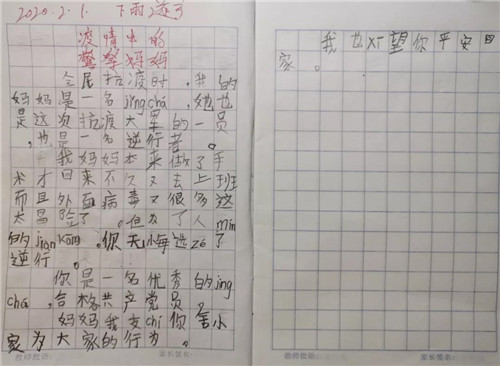 2020.2.1. 下雨
疫情中的
警察妈妈
全民抗疫时,我的
妈妈是一名jǐngchá,她也
是这次抗疫大军的一员
,也是一名逆行者。
我妈妈本来做了手
术才回来不久又去上班
而且外面病毒又很多这
太冒险了。但为了人mín
的jiànkāng。你无悔选zé了
逆行。
你是一名优秀的jǐng
chá,合格共产党员,
妈妈我支chí你舍小
家为大家的行为。
我也xī望你平安回
家。
教师批语:
家长签名:
教师批语:
家长签名: